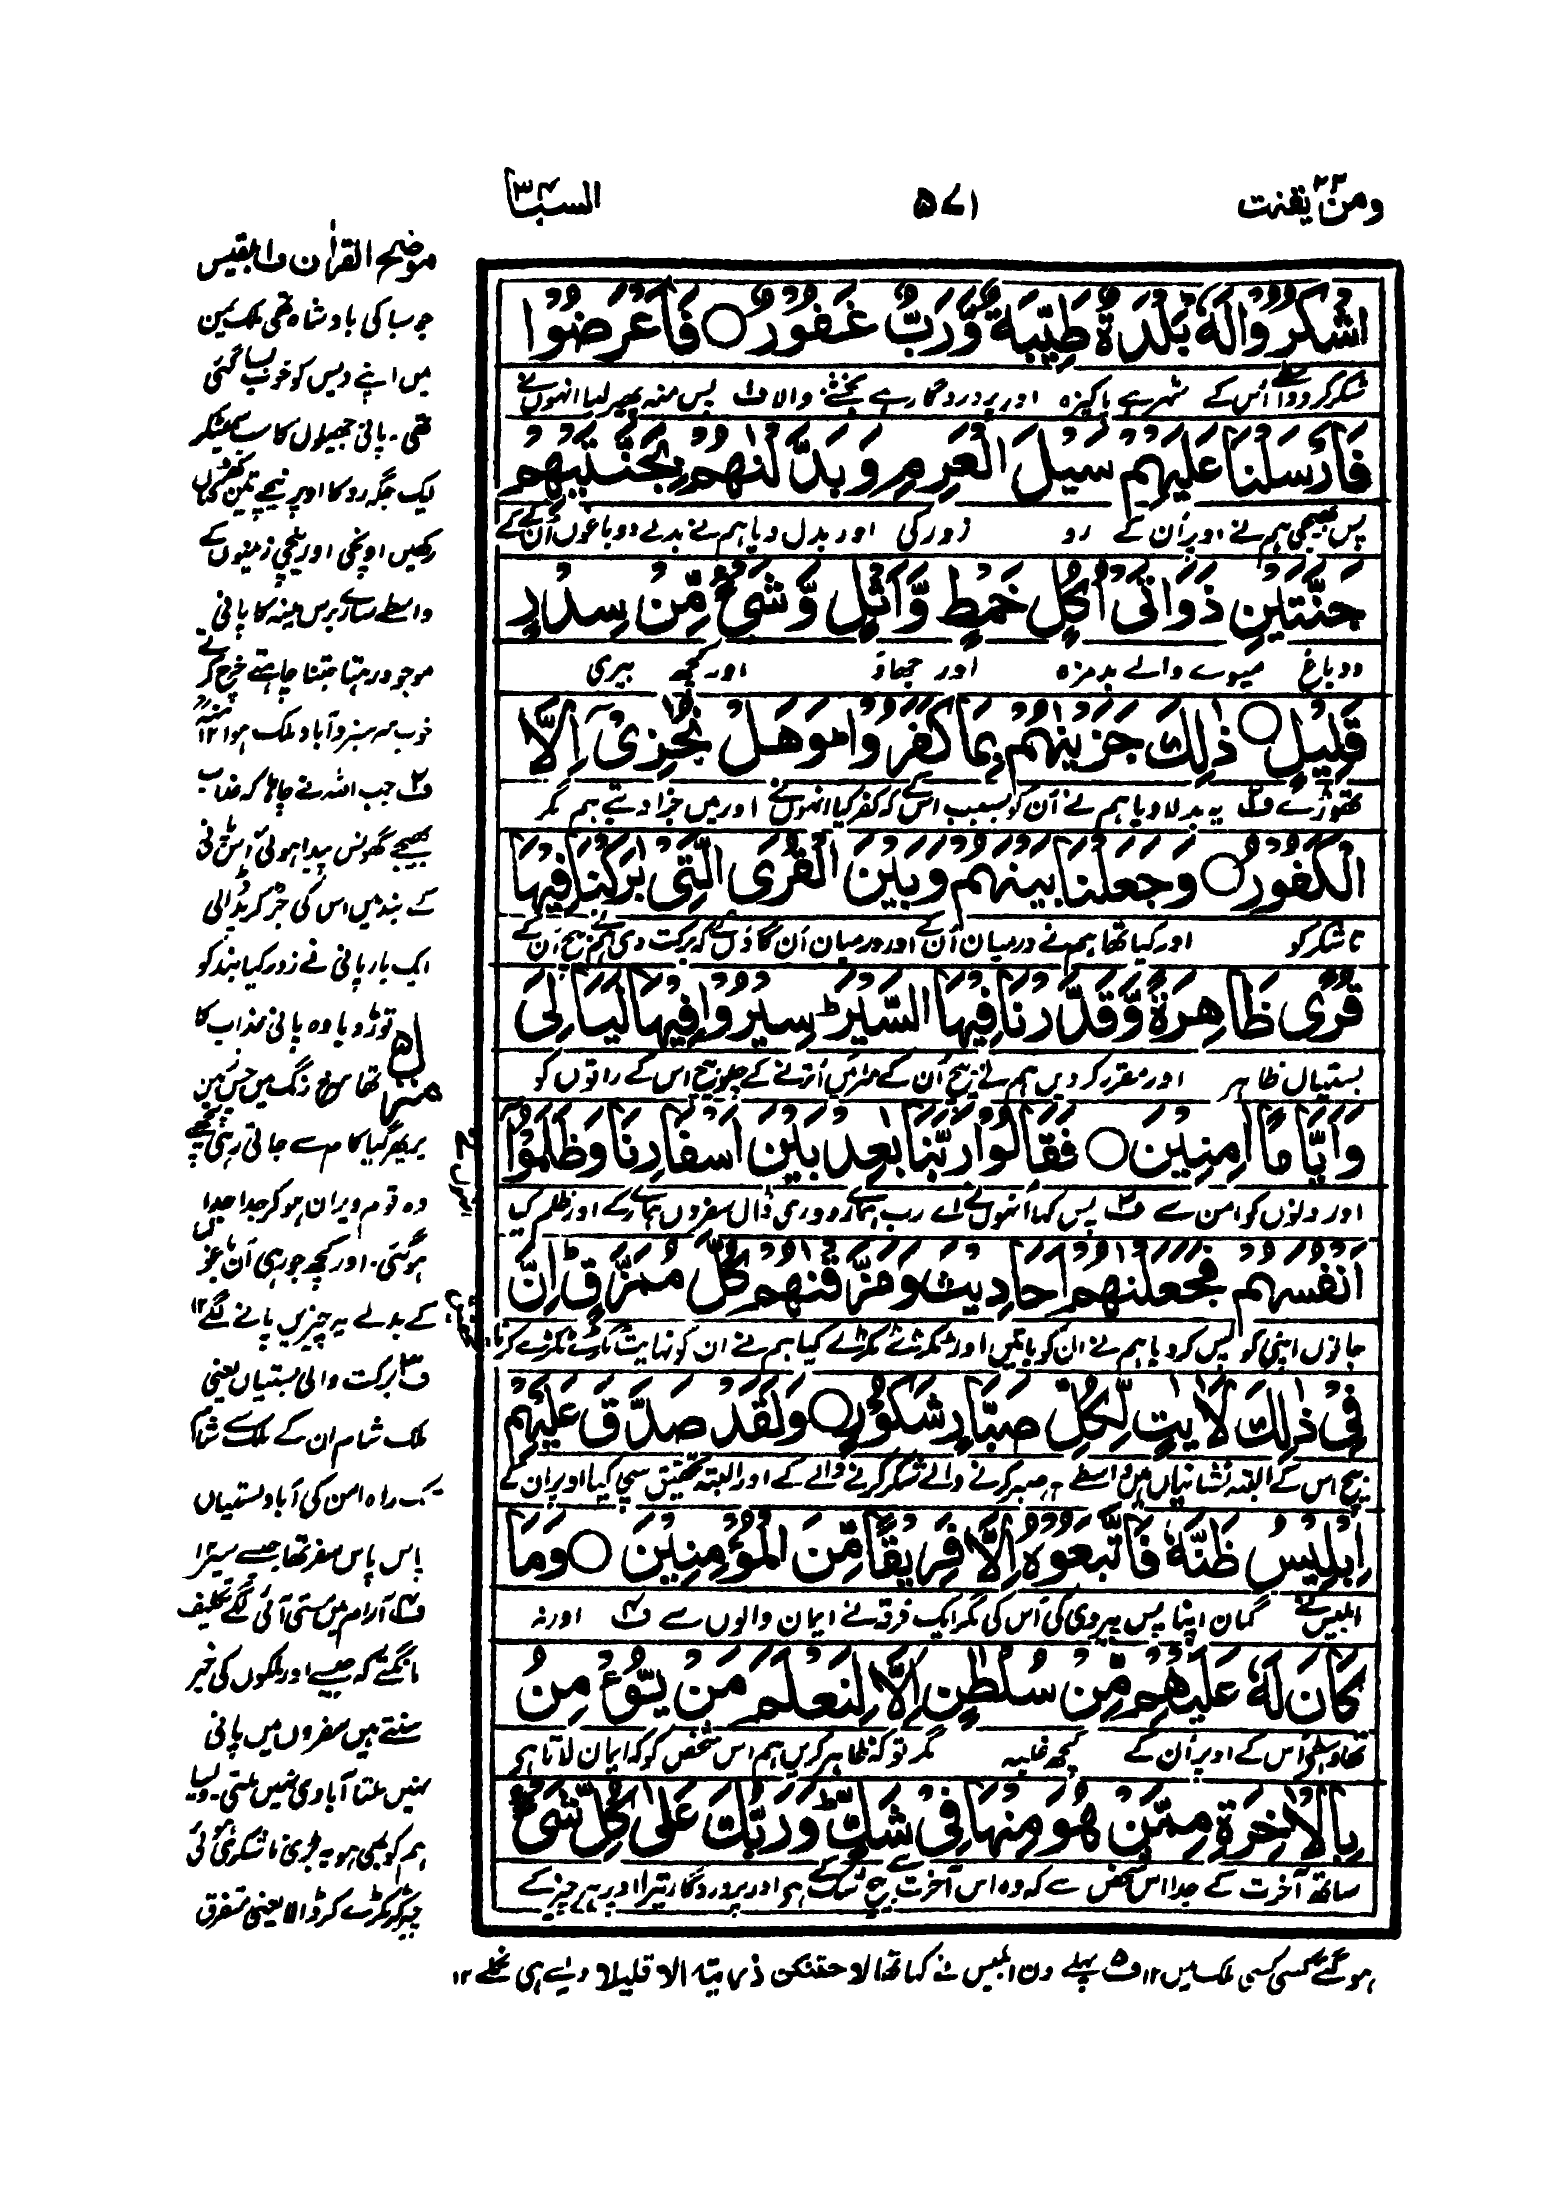 ومن یقنت ۲۲
۵۷۱
السبا ۳۴
اشْكُرُوْا لَهٗ بَلْدَةٌ طَيِّبَةٌ وَّرَبٌّ غَفُوْرٌ ○ فَاَعْرَضُوْا
شکر کرو واسطے اُس کے شہر ہے پاکیزہ اور پروردگار ہے بخشنے والا ف۱ پس منہ پھیر لیا انہوں نے
فَاَرْسَلْنَا عَلَيْهِمْ سَيْلَ الْعَرِمِ وَبَدَّلْنٰهُمْ بِجَنَّتَيْهِمْ
پس بھیجی ہم نے اوپر اُن کے رو زور کی اور بدل دیا ہم نے بدلے دو باغوں اُن کے کے
جَنَّتَيْنِ ذَوَاتَيْ اُكُلٍ خَمْطٍ وَّاَثْلٍ وَّشَيْءٍ مِّنْ سِدْرٍ
دو باغ میوے والے بدمزہ اور جھاؤ اور کچھ بیری
قَلِيْلٍ ○ ذٰلِكَ جَزَيْنٰهُمْ بِمَا كَفَرُوْا ؕ وَهَلْ نُجٰزِيْۤ اِلَّا
تھوڑے ف۲ یہ بدلا دیا ہم نے اُن کو بسبب اس کے کہ کفر کیا انہوں نے اور میں جزا دیتے ہم مگر
الْكَفُوْرَ ○ وَجَعَلْنَا بَيْنَهُمْ وَبَيْنَ الْقُرَى الَّتِيْ بٰرَكْنَا فِيْهَا
ناشکر کو اور کیا تھا ہم نے درمیان اُن کے اور درمیان اُن گاؤں کے کہ برکت دی ہم نے بیچ اُن کے
قُرًى ظَاهِرَةً وَّقَدَّرْنَا فِيْهَا السَّيْرَ ؕ سِيْرُوْا فِيْهَا لَيَالِيَ
بستیاں ظاہر اور مقرر کر دیں ہم نے بیچ اُن کے منزلیں اُترنے کے چلو بیچ اس کے راتوں کو
وَاَيَّامًا اٰمِنِيْنَ ○ فَقَالُوْا رَبَّنَا بٰعِدْ بَيْنَ اَسْفَارِنَا وَظَلَمُوْۤا
اور دنوں کو امن سے ف۳ پس کہا اُنہوں نے اے رب ہمارے دوری ڈال سفروں ہمارے کے اور ظلم کیا
اَنْفُسَهُمْ فَجَعَلْنٰهُمْ اَحَادِيْثَ وَمَزَّقْنٰهُمْ كُلَّ مُمَزَّقٍ ؕ اِنَّ
جانوں اپنی کو پس کر دیا ہم نے ان کو باتیں اور ٹکڑے ٹکڑے کیا ہم نے ان کو نہایت ٹکڑے ٹکڑے کرنا
فِيْ ذٰلِكَ لَاٰيٰتٍ لِّكُلِّ صَبَّارٍ شَكُوْرٍ ○ وَلَقَدْ صَدَّقَ عَلَيْهِمْ
بیچ اس کے البتہ نشانیاں ہیں واسطے ہر صبر کرنے والے شکر کرنے والے کے اور البتہ تحقیق سچ کیا اوپر اُن کے
اِبْلِيْسُ ظَنَّهٗ فَاتَّبَعُوْهُ اِلَّا فَرِيْقًا مِّنَ الْمُؤْمِنِيْنَ ○ وَمَا
ابلیس نے گمان اپنا پس پیروی کی اُس کی مگر ایک فرقہ نے ایمان والوں سے ف۴ اور نہ
كَانَ لَهٗ عَلَيْهِمْ مِّنْ سُلْطٰنٍ اِلَّا لِنَعْلَمَ مَنْ يُّؤْمِنُ
تھا واسطے اُس کے اوپر اُن کے کچھ غلبہ مگر تو کہ ظاہر کریں ہم اس شخص کو کہ ایمان لاتا ہے
بِالْاٰخِرَةِ مِمَّنْ هُوَ مِنْهَا فِيْ شَكٍّ ؕ وَرَبُّكَ عَلٰى كُلِّ شَيْءٍ
ساتھ آخرت کے جدا اس شخص سے کہ وہ اس آخرت سے بیچ شک کے ہے اور پروردگار تیرا اوپر ہر چیز کے
موضح القراٰن ف۱ بلقیس
جو سبا کی بادشاہ تھی ملک یمن
میں اپنے دیس کو خوب بسا گئی
تھی۔ پانی جھیلوں کا سب سمیٹ کر
ایک جگہ روکا اوپر نیچے تین کھڑکیاں
رکھیں اونچی اور نیچی زمینوں کے
واسطے سارے برس مینہ کا پانی
موجود رہتا جتنا چاہتے خرچ کرتے
خوب سرسبز و آباد ملک ہوا ۱۲ منہ
ف۲ جب اللہ نے چاہا کہ عذاب
بھیجے گھونس پیدا ہوئی اس پانی
کے بند میں اس کی جڑ کرید ڈالی
ایک بار پانی نے زور کیا بند کو
توڑ دیا وہ پانی عذاب کا
تھا سرخ رنگ میں جس زمین
پر پھر گیا کام سے جاتی رہی پیچھے
وہ قوم ویران ہو کر جدا جدا
ہو گئی۔ اور کچھ جو رہی اُن باغوں
کے بدلے یہ چیزیں پانے لگے ۱۲
ف۳ برکت والی بستیاں یعنی
ملک شام ان کے ملک سے شام
تک راہ امن کی آباد بستیاں
پاس پاس سفر تھا جیسے سیر ۱۲
ف۴ آرام میں مستی آئی لگے تکلیف
مانگنے کہ جیسے اور ملکوں کی خبر
سنتے ہیں سفروں میں پانی
نہیں ملتا آبادی نہیں ملتی۔ ویسا
ہم کو بھی ہو یہ بڑی ناشکری ہوئی
چیر کر ٹکڑے کر ڈالا یعنی متفرق
ہو گئے کسی کسی ملک میں ۱۲ ف۵ پہلے دن ابلیس نے کہا تھا لاحتنکن ذریتہ الا قلیلا ویسے ہی نکلے ۱۲